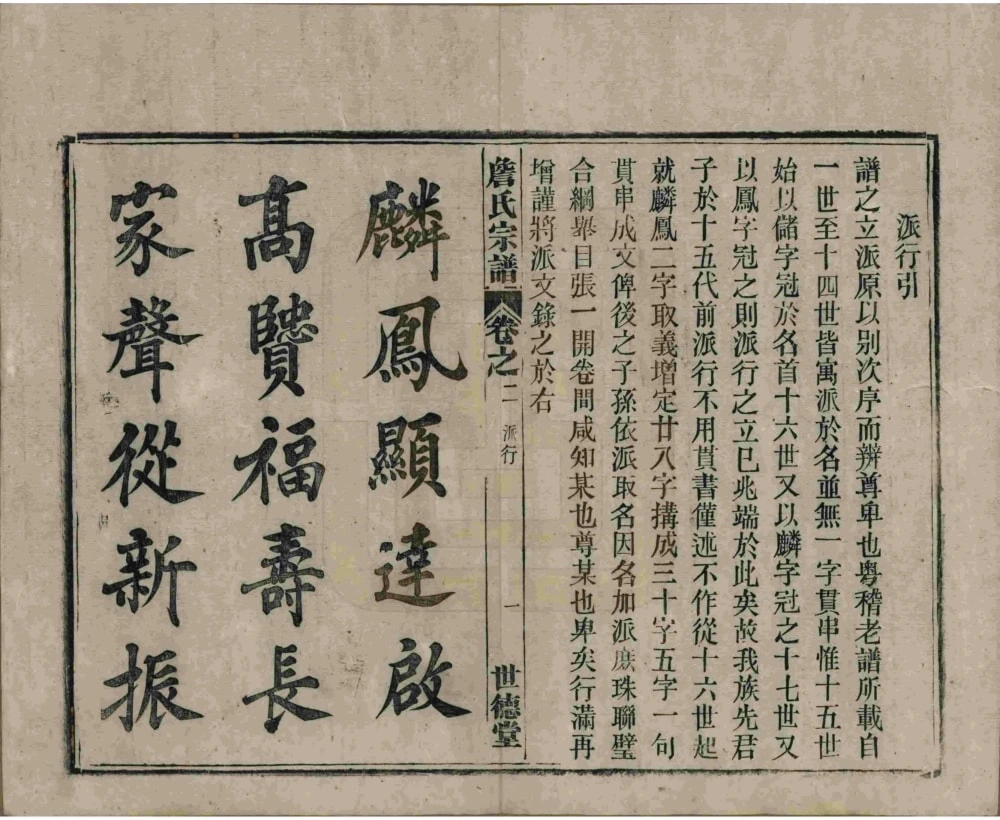 派行引
譜之立派原以别次序而辨尊卑也粵稽老譜所載自
一世至十四世皆寓派於名並無一字貫串惟十五世
始以儲字冠於名首十六世又以麟字冠之十七世又
以鳳字冠之則派行之立已兆端於此矣故我族先君
子於十五代前派行不用貫書僅述不作從十六世起
就麟鳳二字取義增定廿八字搆成三十字五字一句
貫串成文俾後之子孫依派取名因名加派庶珠聯璧
合綱舉目張一開卷間咸知某也尊某也卑矣行滿再
增謹將派文錄之於右
詹氏宗譜 卷之二 派行 一 世德堂
麟鳳顯達啟
高贒福壽長
家聲從新振